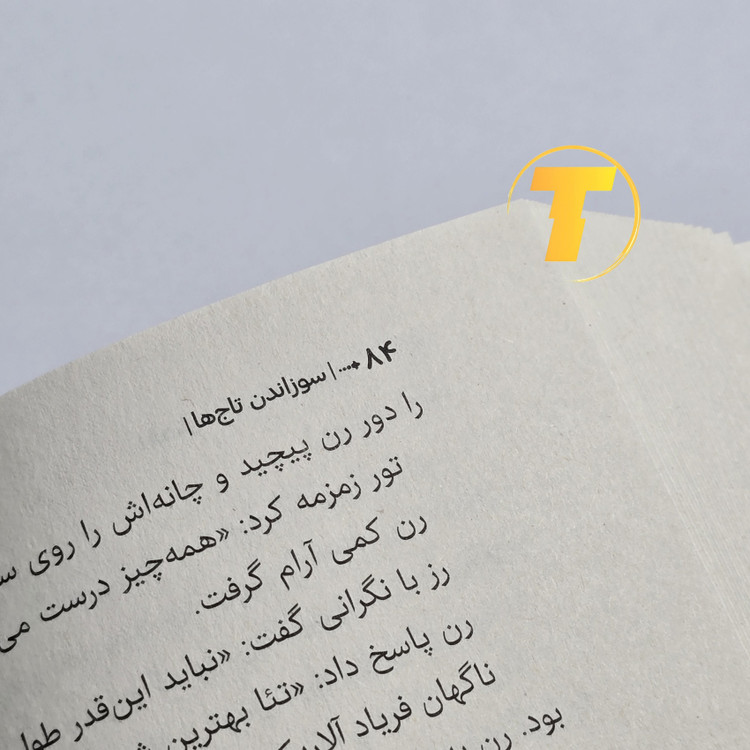 T
۸۴ | سوزاندن تاج‌ها |
را دور رن پیچید و چانه‌اش را روی
تور زمزمه کرد: «همه‌چیز درست می
رن کمی آرام گرفت.
رز با نگرانی گفت: «نباید این‌قدر
رن پاسخ داد: «تئا بهترین
ناگهان فریاد
بود. رن